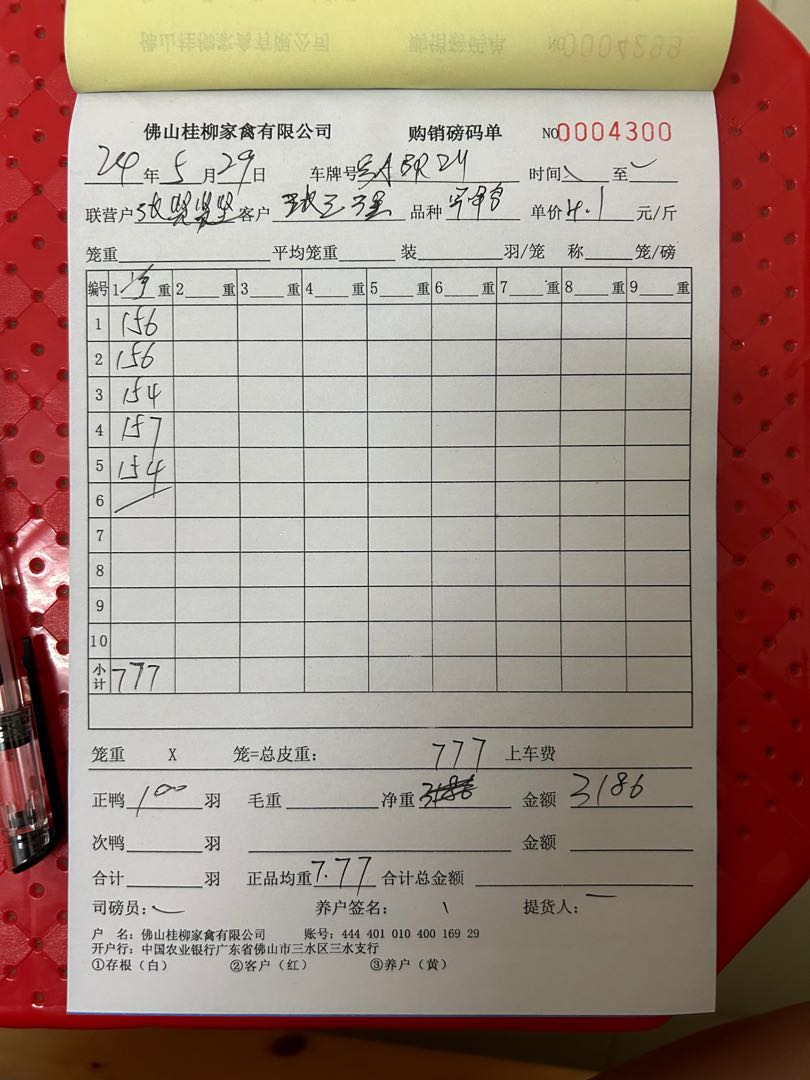 佛山桂柳家禽有限公司 购销磅码单 NO0004300
24年5月29日 车牌号 时间 至
联营户 客户 品种 单价4.1元/斤
笼重 平均笼重 装 羽/笼 称 笼/磅
编号 1净重 2 重 3 重 4 重 5 重 6 重 7 重 8 重 9 重
1 156
2 156
3 154
4 157
5 154
6
7
8
9
10
小计 777
笼重 X 笼=总皮重: 777 上车费
正鸭100羽 毛重 净重 金额3186
次鸭 羽 金额
合计 羽 正品均重7.77 合计总金额
司磅员: 养户签名: 提货人:
户 名: 佛山桂柳家禽有限公司 账号: 444 401 010 400 169 29
开户行: 中国农业银行广东省佛山市三水区三水支行
①存根（白） ②客户（红） ③养户（黄）